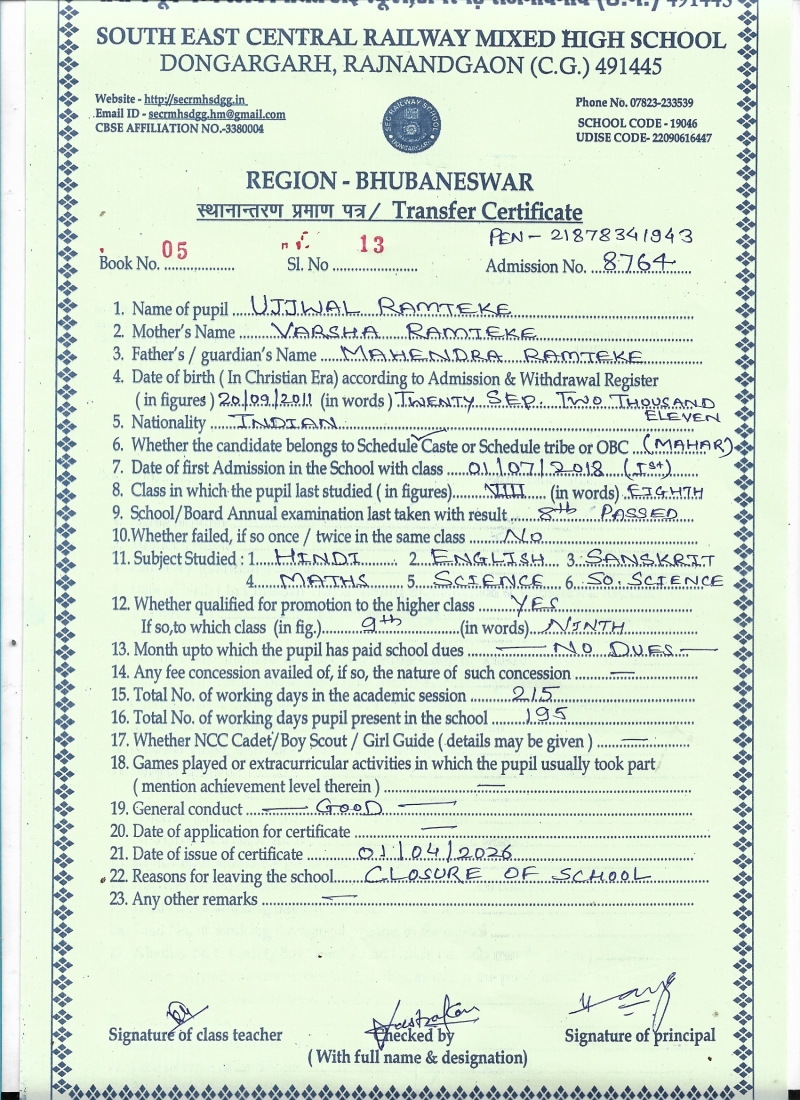 SOUTH EAST CENTRAL RAILWAY MIXED HIGH SCHOOL
DONGARGARH, RAJNANDGAON (C.G.) 491445
Website - http://secrmhsdgg.in
Email ID - secrmhsdgg.hm@gmail.com
CBSE AFFILIATION NO.-3380004
SEC RAILWAY SCHOOL
DONGARGARH
Phone No. 07823-233539
SCHOOL CODE - 19046
UDISE CODE- 22090616447
REGION - BHUBANESWAR
स्थानान्तरण प्रमाण पत्र / Transfer Certificate
PEN - 21878341943
Book No. 05 Sl. No 13 Admission No. 8764
1. Name of pupil UJJWAL RAMTEKE
2. Mother's Name VARSHA RAMTEKE
3. Father's / guardian's Name MAHENDRA RAMTEKE
4. Date of birth ( In Christian Era) according to Admission & Withdrawal Register
( in figures ) 20/09/2011 (in words ) TWENTY SEP. TWO THOUSAND
ELEVEN
5. Nationality INDIAN
6. Whether the candidate belongs to Schedule Caste or Schedule tribe or OBC (MAHAR)
7. Date of first Admission in the School with class 01/07/2018 (Ist)
8. Class in which the pupil last studied ( in figures) VIII (in words) EIGHTH
9. School/Board Annual examination last taken with result 8th PASSED
10.Whether failed, if so once / twice in the same class No
11. Subject Studied : 1. HINDI 2. ENGLISH 3. SANSKRIT
4. MATHS 5. SCIENCE 6. SO. SCIENCE
12. Whether qualified for promotion to the higher class YES
If so,to which class (in fig.) 9th (in words) NINTH
13. Month upto which the pupil has paid school dues — NO DUES —
14. Any fee concession availed of, if so, the nature of such concession —
15. Total No. of working days in the academic session 215
16. Total No. of working days pupil present in the school 195
17. Whether NCC Cadet/Boy Scout / Girl Guide ( details may be given ) —
18. Games played or extracurricular activities in which the pupil usually took part
( mention achievement level therein ) —
19. General conduct — GOOD —
20. Date of application for certificate —
21. Date of issue of certificate 01/04/2026
22. Reasons for leaving the school CLOSURE OF SCHOOL
23. Any other remarks —
Signature of class teacher Checked by Signature of principal
( With full name & designation)